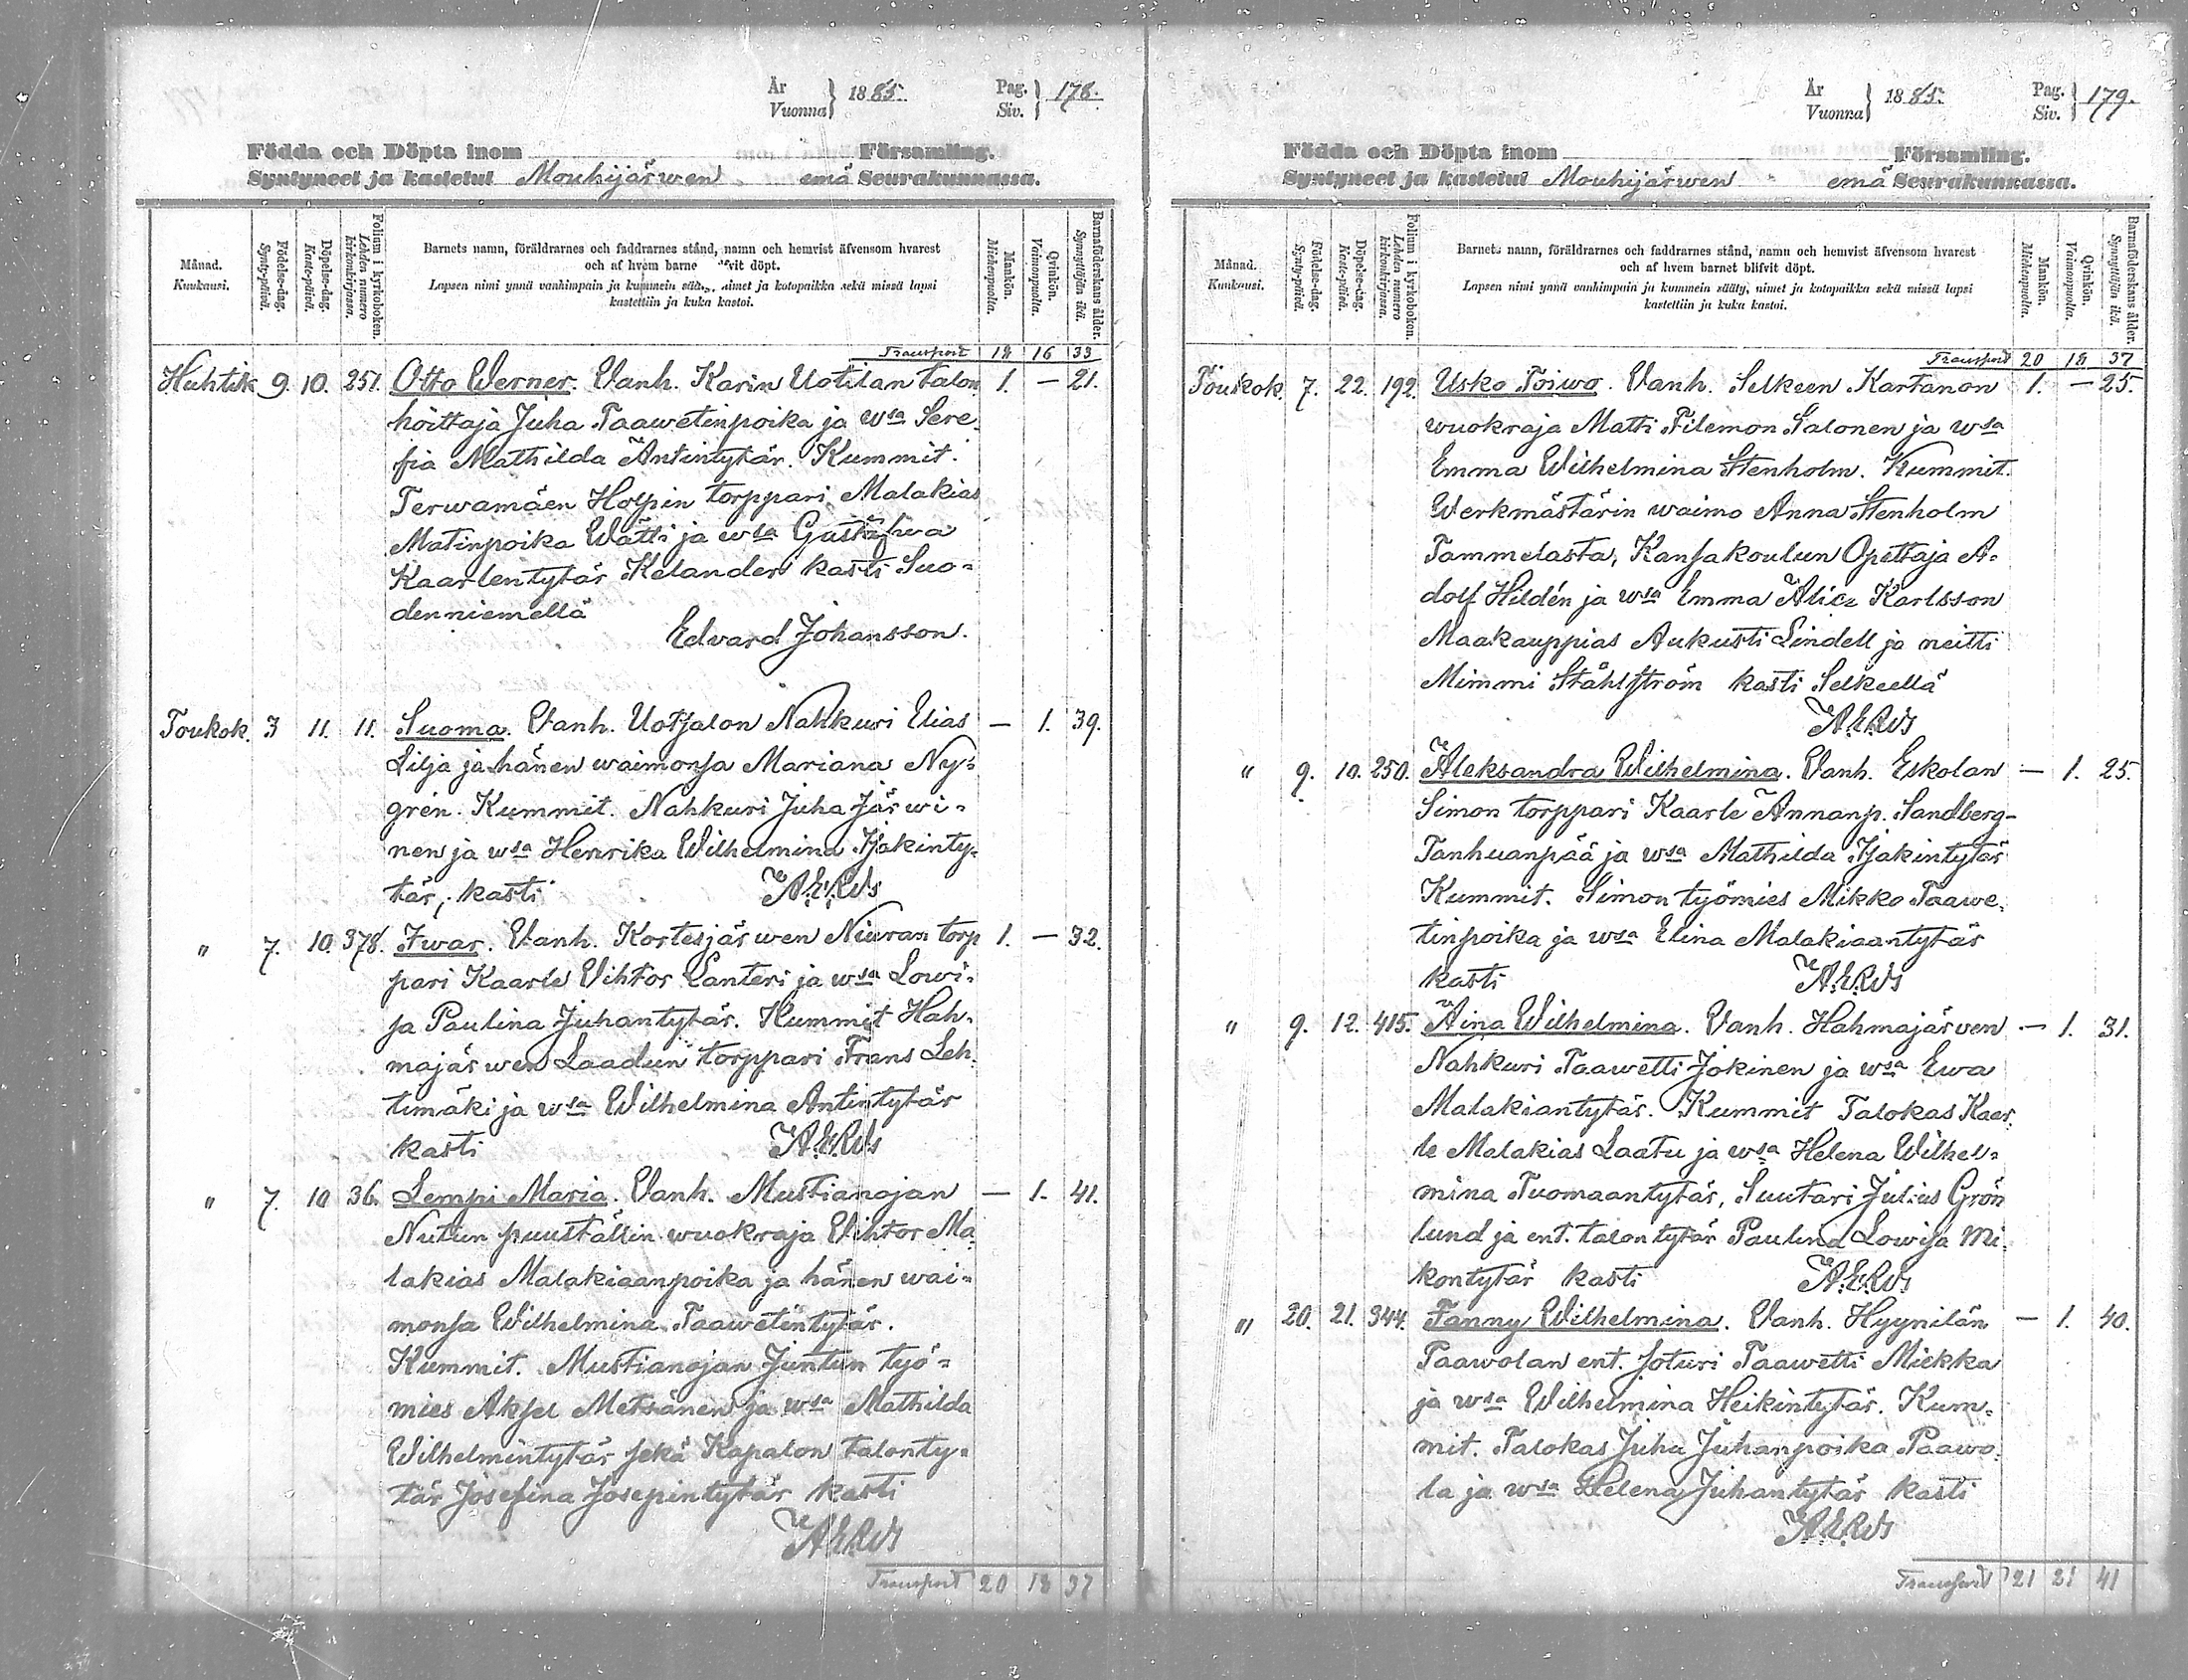 År
Vuonna } 1885.
Pag.
Siv. } 178.
Födda och Döpta inom Församling.
Syntyneet ja kastetut Mouhijärwen emä Seurakunnassa.
Månad.
Kuukausi.
Födelse-dag.
Synty-päivä.
Döpelse-dag.
Kaste-päivä.
Folium i kyrkoboken.
Lehden numero kirkonkirjassa.
Barnets namn, föräldrarnes och faddrarnes stånd, namn och hemvist äfvensom hvarest
och af hvem barne fvit döpt.
Lapsen nimi ynnä vanhimpain ja kummein sää nimet ja kotopaikka sekä missä lapsi
kastettiin ja kuka kastoi.
Mankön.
Miehenpuolia.
Qvinkön.
Vaimonpuolia.
Barnaföderskans ålder.
Synnyttäjän ikä.
Transport 18 16 33
Huhtik 9. 10. 251. Otto Werner. Vanh. Karin Uotilan talon 1. — 21.
hoittaja Juha Taawetinpoika ja wsa Sere-
fia Mathilda Antintytär. Kummit.
Terwamäen Hospin torppari Malakias
Matinpoika Wätti ja wsa Gustafwa
Kaarlentytär Kelander kasti Suo-
denniemellä
Edvard Johansson.
Toukok. 3 11. 11. Suoma. Vanh. Uotsalon Nahkuri Elias — 1. 39.
Lilja ja hänen waimonsa Mariana Ny-
grén. Kummit. Nahkuri Juha Järwi-
nen ja wsa Henrika Wilhelmina Isakinty-
tär, kasti A.E.R.Ws
" 7. 10. 378. Iwar. Vanh. Kortesjärwen Niuran torp 1. — 32.
pari Kaarle Vihtor Santeri ja wsa Lowi-
sa Paulina Juhantytär. Kummit Hah-
majärwen Laadun torppari Frans Leh-
timäki ja wsa Wilhelmina Antintytär
kasti A.E.R.Ws
" 7. 10 36. Lempi Maria. Vanh. Mustianojan — 1. 41.
Nutun puuställin wuokraja Vihtor Ma-
lakias Malakiaanpoika ja hänen wai-
monsa Wilhelmina Taawetintytär.
Kummit. Mustianojan Juntun työ-
mies Aksel Metsänen ja wsa Mathilda
Wilhelmintytär sekä Kapalon talonty-
tär Josefina Josepintytär kasti
A.E.R.Ws
Transport 20 18 37
År
Vuonna } 1885.
Pag.
Siv. } 179.
Födda och Döpta inom Församling.
Syntyneet ja kastetut Mouhijärwen emä Seurakunnassa.
Månad.
Kuukausi.
Födelse-dag.
Synty-päivä.
Döpelse-dag.
Kaste-päivä.
Folium i kyrkoboken.
Lehden numero kirkonkirjassa.
Barnets namn, föräldrarnes och faddrarnes stånd, namn och hemvist äfvensom hvarest
och af hvem barnet blifvit döpt.
Lapsen nimi ynnä vanhimpain ja kummein sääty, nimet ja kotopaikka sekä missä lapsi
kastettiin ja kuka kastoi.
Mankön.
Miehenpuolia.
Qvinkön.
Vaimonpuolia.
Barnaföderskans ålder.
Synnyttäjän ikä.
Transport 20 18 37
Toukok. 7. 22. 192. Usko Toiwo. Vanh. Selkeen Kartanon 1. — 25.
wuokraja Matti Filemon Salonen ja wsa
Emma Wilhelmina Stenholm. Kummit.
Werkmästärin waimo Anna Stenholm
Tammelasta, Kansakoulun Opettaja A-
dolf Hildén ja wsa Emma Alice Karlsson
Maakauppias Aukusti Lindell ja neitti
Mimmi Ståhlström kasti Selkeellä
A.E.R.Ws
" 9. 10. 250. Aleksandra Wilhelmina. Vanh. Eskolan — 1. 25.
Simon torppari Kaarle Annanp. Sandberg-
Tanhuanpää ja wsa Mathilda Isakintytär
Kummit. Simon työmies Mikko Taawe-
tinpoika ja wsa Elina Malakiaantytär
kasti A.E.R.Ws
" 9. 12. 415. Aina Wilhelmina. Vanh. Hahmajärven — 1. 31.
Nahkuri Taawetti Jokinen ja wsa Ewa
Malakiantytär. Kummit Talokas Kaar-
le Malakias Laatu ja wsa Helena Wilhel-
mina Tuomaantytär, Suutari Julius Grön
lund ja ent. talontytär Paulina Lowisa Mi-
kontytär kasti A.E.R.Ws
" 20. 21. 344. Fanny Wilhelmina. Vanh. Hyynilän — 1. 40.
Taawolan ent. soturi Taawetti Miekka
ja wsa Wilhelmina Heikintytär. Kum-
mit. Talokas Juha Juhanpoika Paawo-
la ja wsa Helena Juhantytär kasti
A.E.R.Ws
Transport 21 21 41